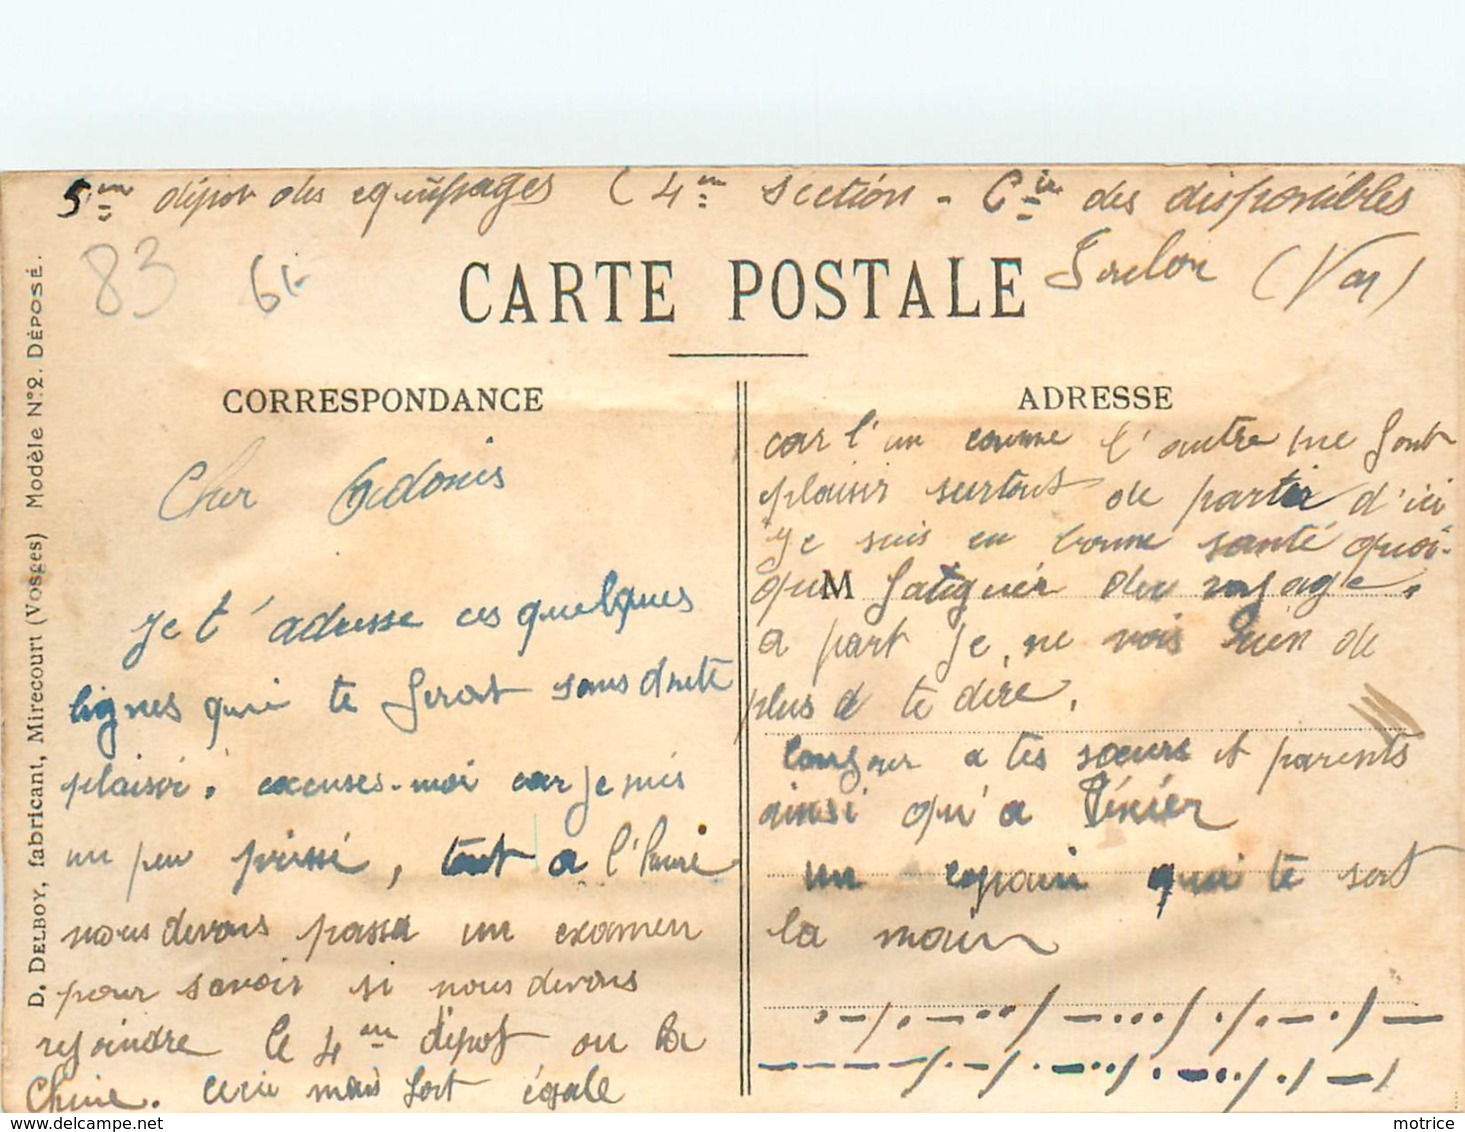 5me dépot des equipages (4me section - Cie des disponibles
Toulon (Var)
83
CARTE POSTALE
D. DELBOY, fabricant, Mirecourt (Vosges) Modèle N°2. DÉPOSÉ.
CORRESPONDANCE
Cher Adonis
Je t'adresse ces quelques
lignes qui te feront sans doute
plaisir. excuses-moi car je suis
un peu pressé, tout a l'heure
nous devons passer un examen
pour savoir si nous devons
rejoindre le 4me dépot ou la
Chine. cela mais fort égale
ADRESSE
car l'un comme l'autre me font
plaisir surtout de partir d'ici
Je suis en bonne santé quoi-
que M fatiguér du voyage.
a part je ne vois rien de
plus a te dire.
a tes soeurs et parents
ainsi qu'a
un copain qui te sert
la main
motrice